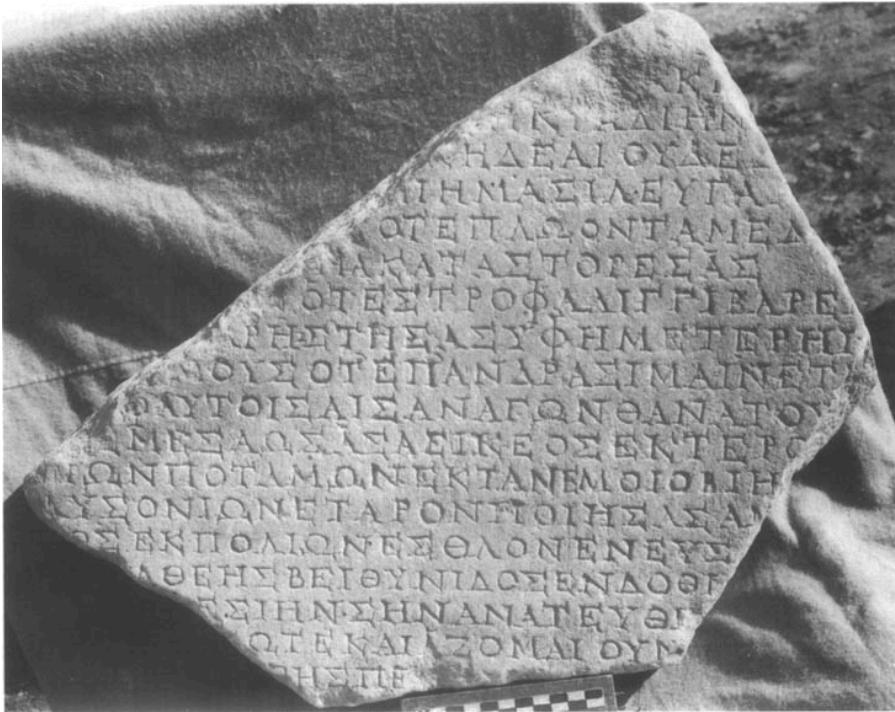 ΕΚ
ΚΥΑΔΙΗΝ
ΗΔΕΑΙ ΟΥΔΕ
ΠΗΜΑΣΙΛΕΥΓΑ
ΟΤΕΠΛΩΟΝΤΑΜΕΔ
ΚΑΤΑΣΤΟΡΕΣΑΣ
ΟΤΕΣΤΡΟΦΑΔΙΓΓΙΒΑΡΕ
ΑΡΗΣΤΗΣΑΣΥΦΗΜΕΤΕΡΗΙ
ΜΟΥΣΟΤΕΠΑΝΔΡΑΣΙΜΑΙΝΕΤ
ΑΥΤΟΙΣΑΙΣΑΝΑΓΩΝΘΑΝΑΤΟΥ
ΜΕΣΑΩΣΑΣΑΣΙΚΕΟΣΕΚΤΕΡΟ
ΡΩΝΠΟΤΑΜΩΝΕΚΤΑΝΕΜΟΙΟΒΙΗ
ΥΣΟΝΙΩΝΕΤΑΡΟΝΠΟΙΗΣΑΣΑ
ΟΣΕΚΠΟΛΙΩΝΕΣΘΛΟΝΕΝΕΥΣ
ΑΘΕΗΣΒΕΙΘΥΝΙΔΟΣΕΝΔΟΘ
ΕΣΙΗΝΣΗΝΑΝΑΤΕΥΘΕ
ΩΤΕΚΑΙΑΖΟΜΑΙΟΥΝ
ΗΣΠΕ